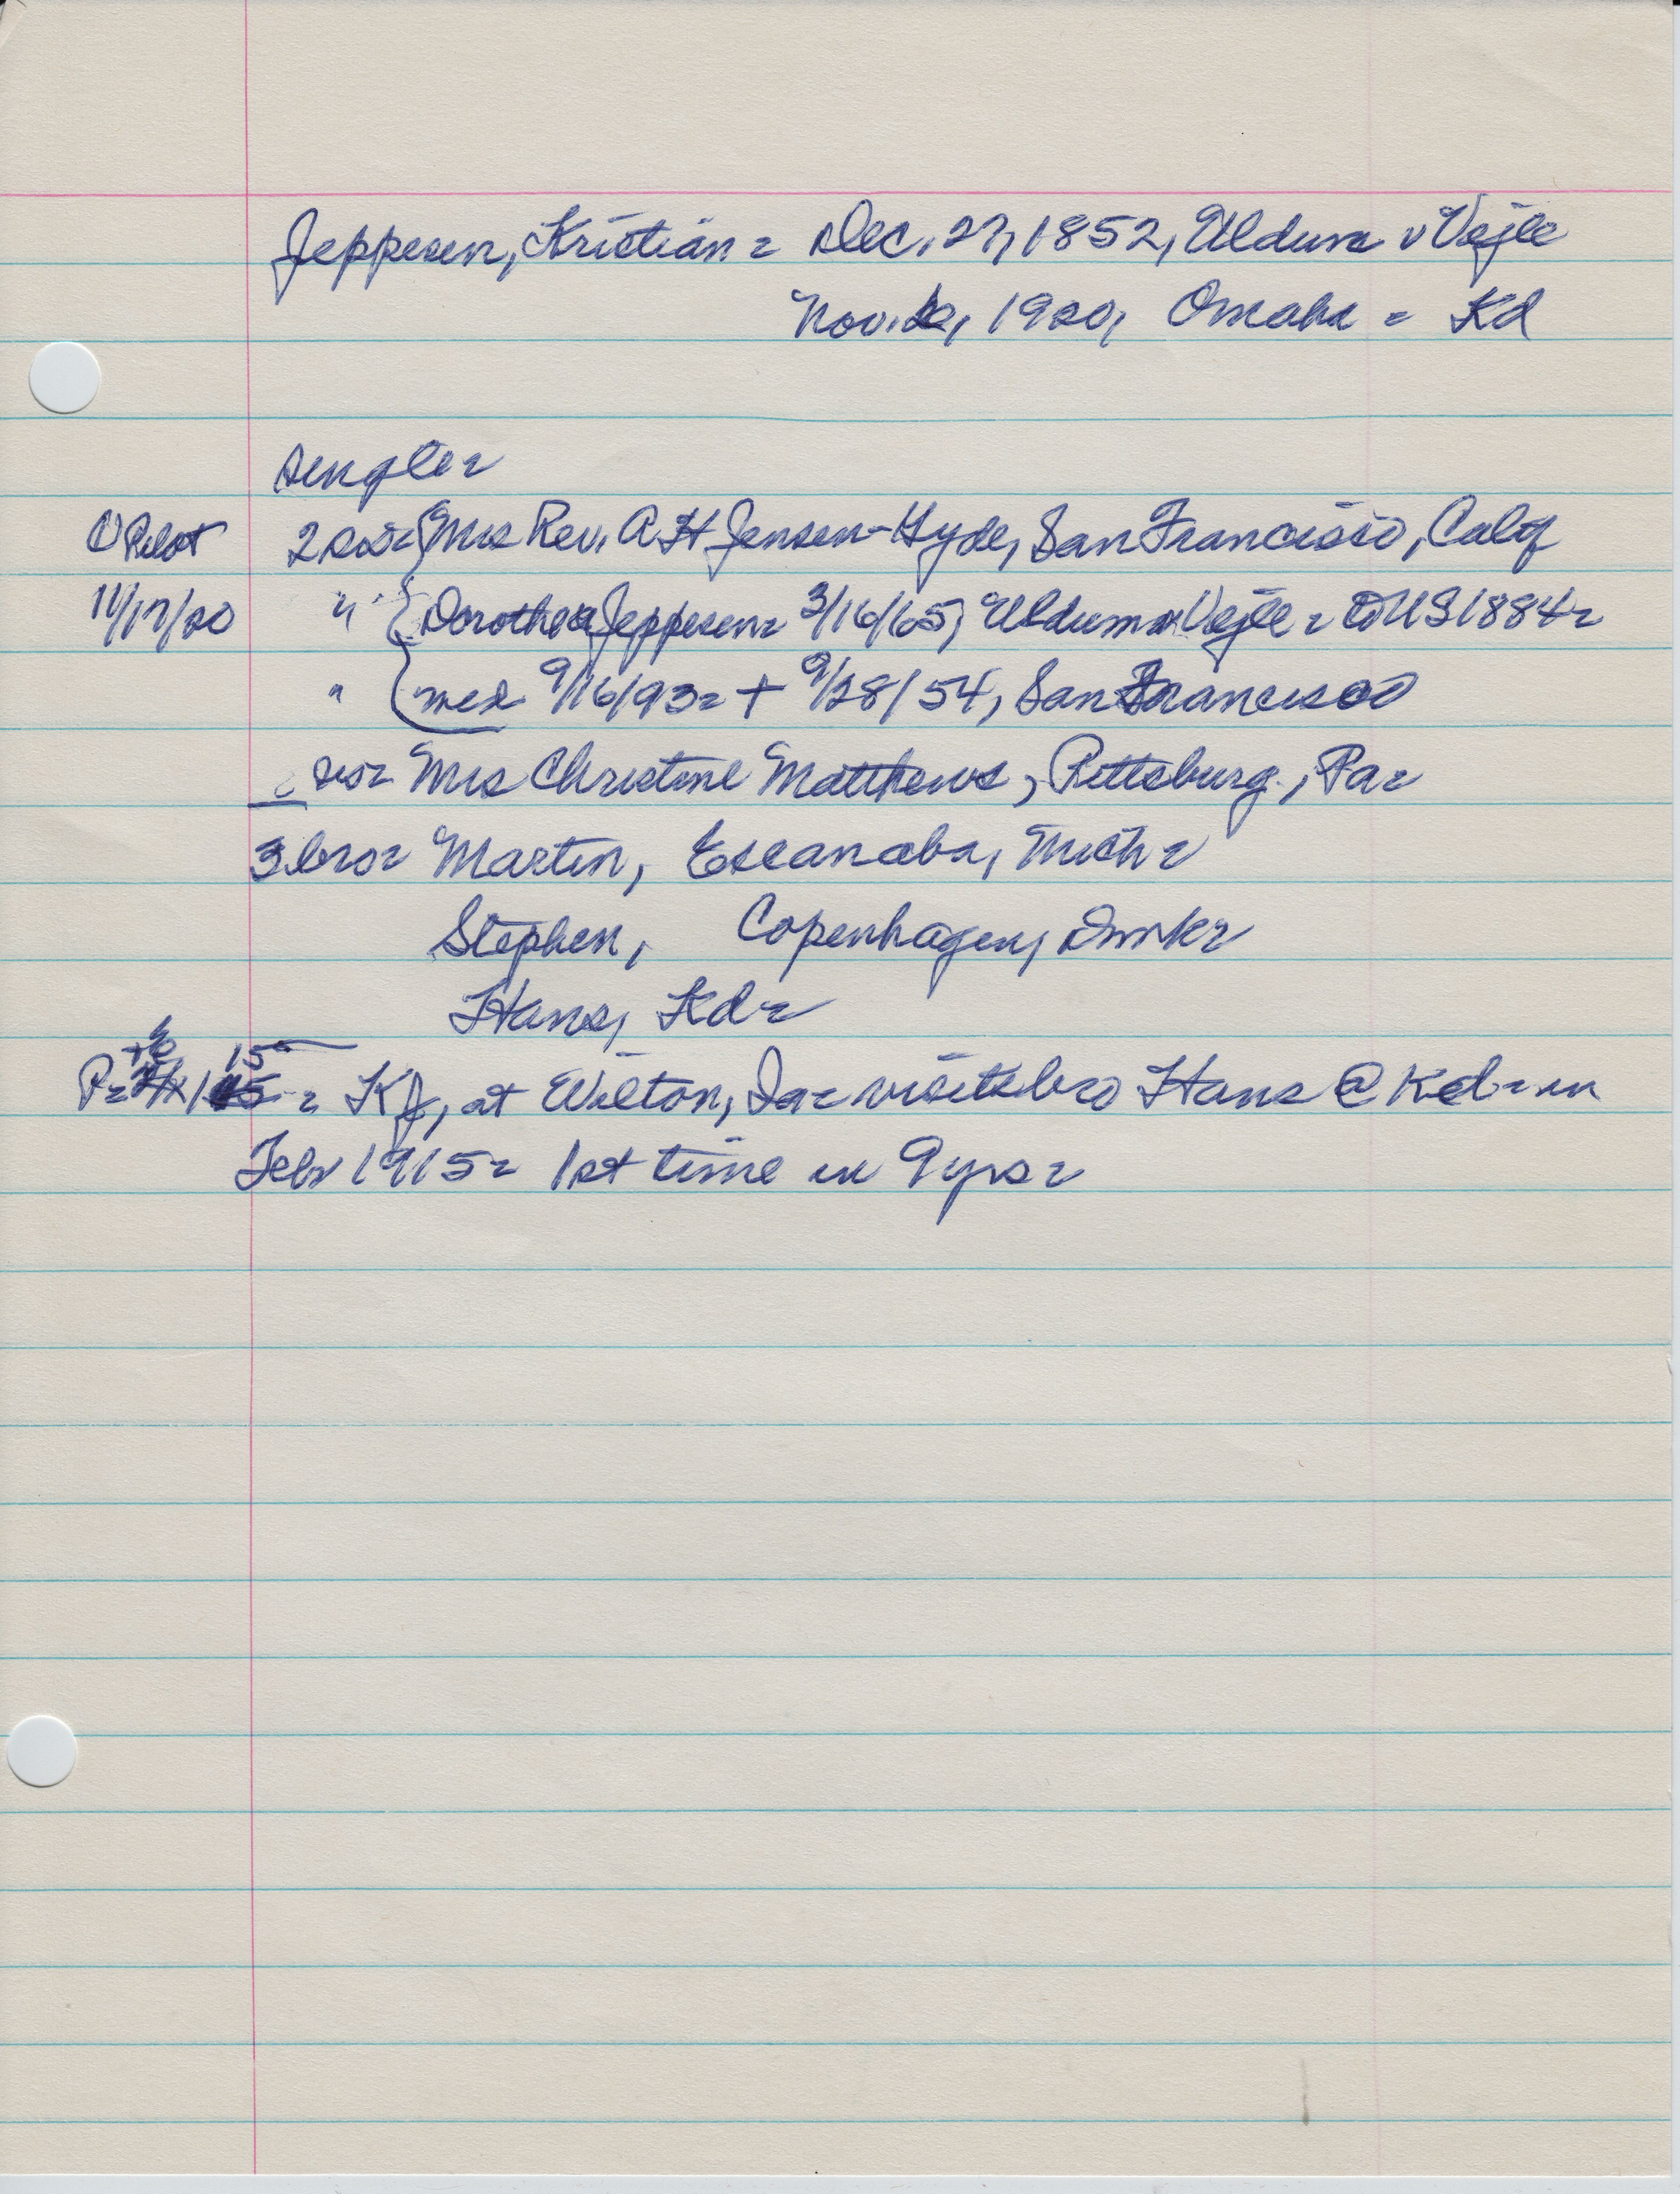 Jeppesen, Kristian - Dec. 27, 1852, Uldum v Vejle
Nov. , 1920, Omaha - Kd
single -
O Pilot 2 sis - { Mrs Rev. A H Jensen-Hyde, San Francisco, Calif
11/17/20 " { Dorothea Jeppesen - 3/16/65, Uldum v Vejle - US 1884 -
" { med 9/16/93 - + 9/28/54, San Francisco
sis - Mrs Christine Matthews, Pittsburg, Pa -
3 bros - Martin, Escanaba, Mich -
Stephen, Copenhagen, Dmk -
Hans, Kd -
P - 15 - Kj, at Wilton, Ia - visits bro Hans @ Kd - in
Feb 1915 - 1st time in 9 yrs -